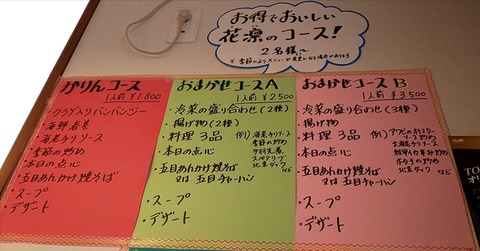 お得でおいしい
花凛のコース！
2名様〜
かりんコース
1人前 ¥1.800
・クラゲ入りバンバンジー
・海鮮春巻
・海老チリソース
・季節の炒め
・本日の点心
・五目あんかけ焼そば
・スープ
・デザート
おまかせコースA
1人前 ¥2.500
・冷菜の盛り合わせ(2種)
・揚げ物(2種)
・料理3品 例)海老チリソース
季節の炒め
牛肉豆鼓
スペアリブ
北京ダック など
・本日の点心
・五目あんかけ焼そば
又は 五目チャーハン
・スープ
・デザート
おまかせコースB
1人前 ¥3.500
・冷菜の盛り合わせ(3種)
・揚げ物
・料理3品 例)
海老チリソース
ホタテの炒め
北京ダック など
・本日の点心
・五目あんかけ焼そば
又は 五目チャーハン
・スープ
・デザート
TO